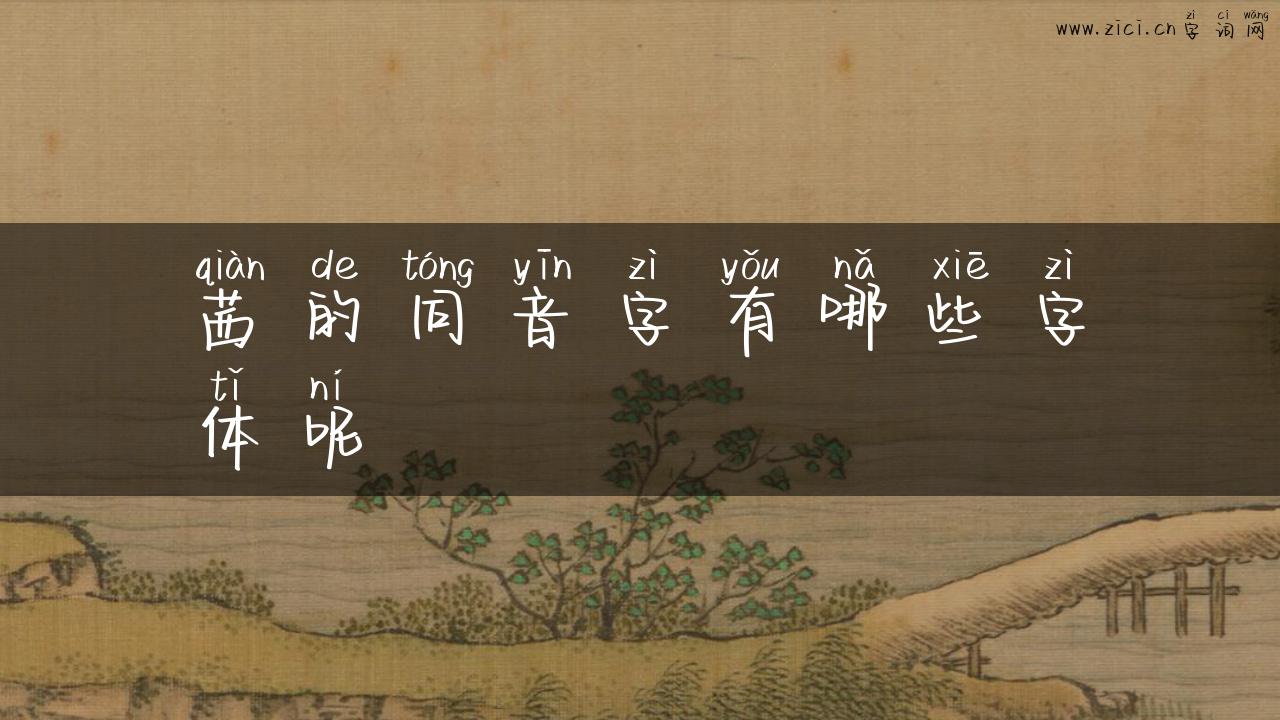 zì cí wǎng
www.zici.cn 字 词 网
qiàn de tóng yīn zì yǒu nǎ xiē zì
茜 的 同 音 字 有 哪 些 字
tǐ ní
体 呢